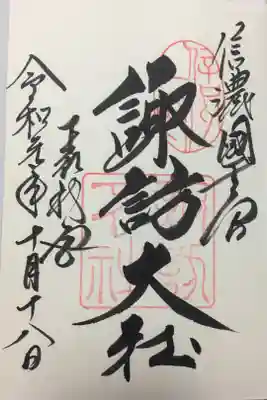 信濃國一宮
諏訪大社
下社秋宮
令和元年十月十八日